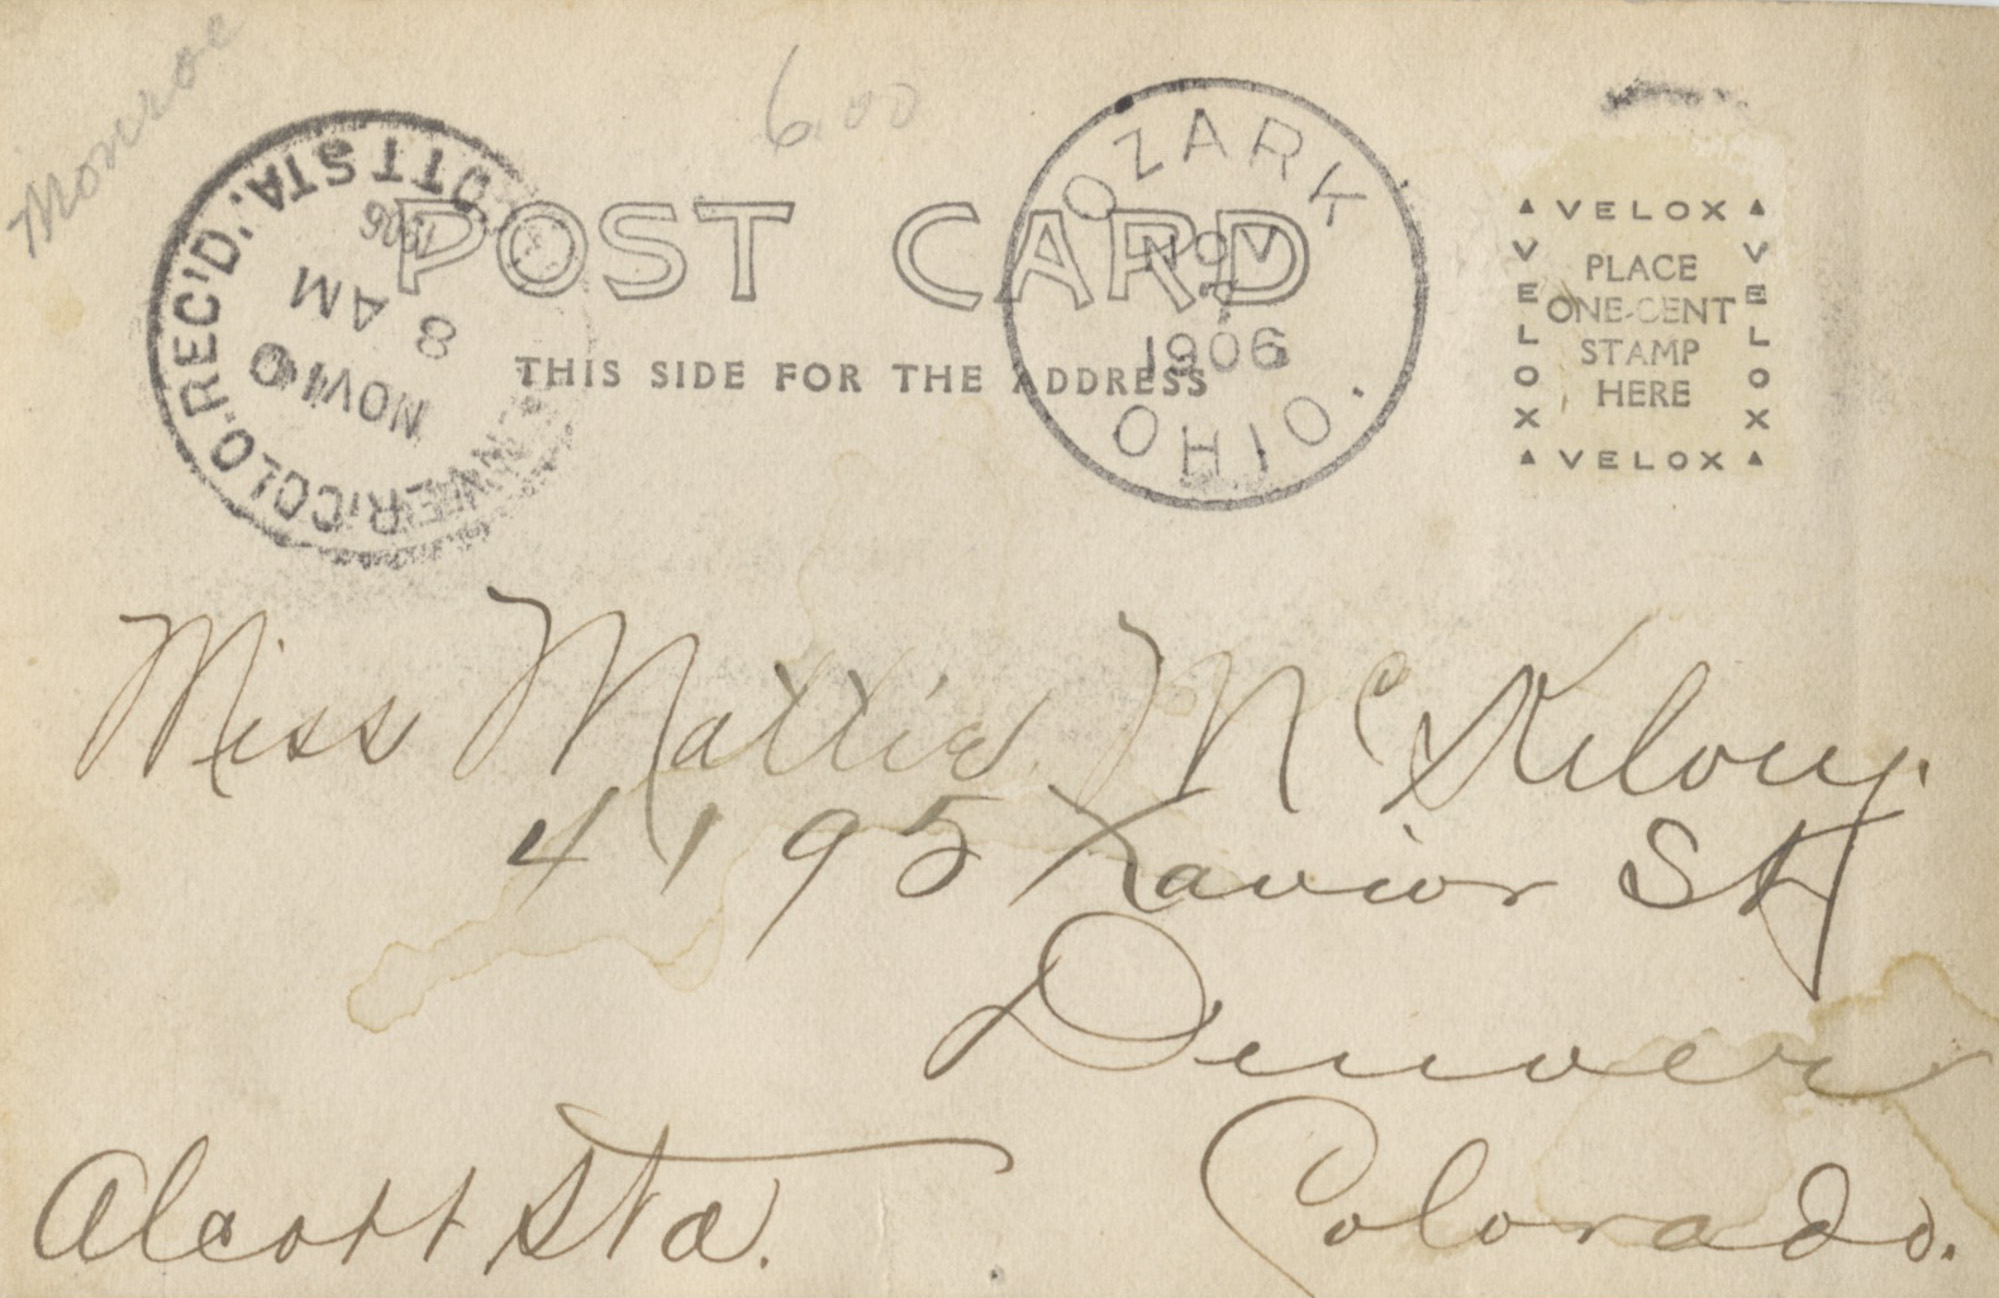 Monroe
6.00
DENVER, COLO. REC'D. OTT STA.
NOV 10
8 AM
1906
POST CARD
THIS SIDE FOR THE ADDRESS
OZARK.
NOV
7
1906
OHIO.
VELOX
VELOX
VELOX
PLACE
ONE-CENT
STAMP
HERE
VELOX
Miss Mattie McKelvey.
4195 Xavior St
Denver
Alcott Sta.
Colorado.